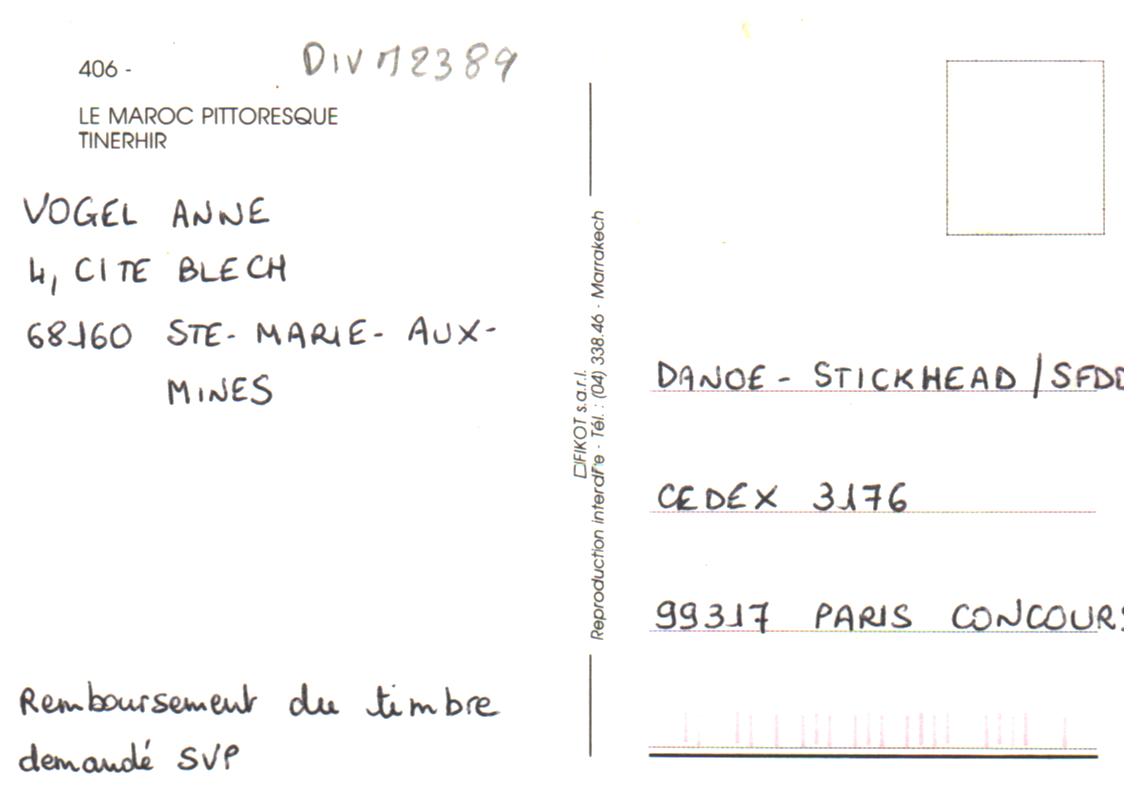 406 -
DIV M2389
LE MAROC PITTORESQUE
TINERHIR
VOGEL ANNE
4, CITE BLECH
68160 STE-MARIE-AUX-
MINES
Remboursement du timbre
demandé SVP
FIKOT s.a.r.l.
Reproduction interdite - Tél. : (04) 338.46 - Marrakech
DANOE - STICKHEAD / SFDD
CEDEX 3176
99317 PARIS CONCOURS